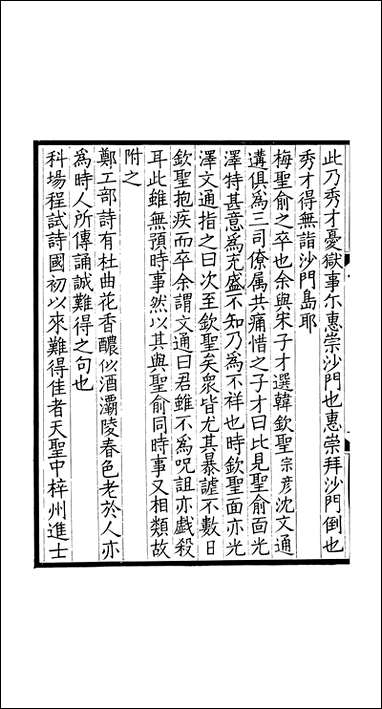 此乃秀才憂獄事尓惠崇沙門也惠崇拜沙門倒也
秀才得無詣沙門島耶
梅聖俞之卒也余與宋子才選韓欽聖宗彦沈文通
遘俱爲三司僚属共痛惜之子才曰比見聖俞面光
澤特甚意爲充盛不知乃爲不祥也時欽聖面亦光
澤文通指之曰次至欽聖矣衆皆尤其暴謔不數日
欽聖抱疾而卒余謂文通曰君雖不爲呪詛亦戲殺
耳此雖無預時事然以其與聖俞同時事又相類故
附之
鄭工部詩有杜曲花香醲似酒灞陵春色老於人亦
爲時人所傳誦誠難得之句也
科場程試詩國初以來難得佳者天聖中梓州進士